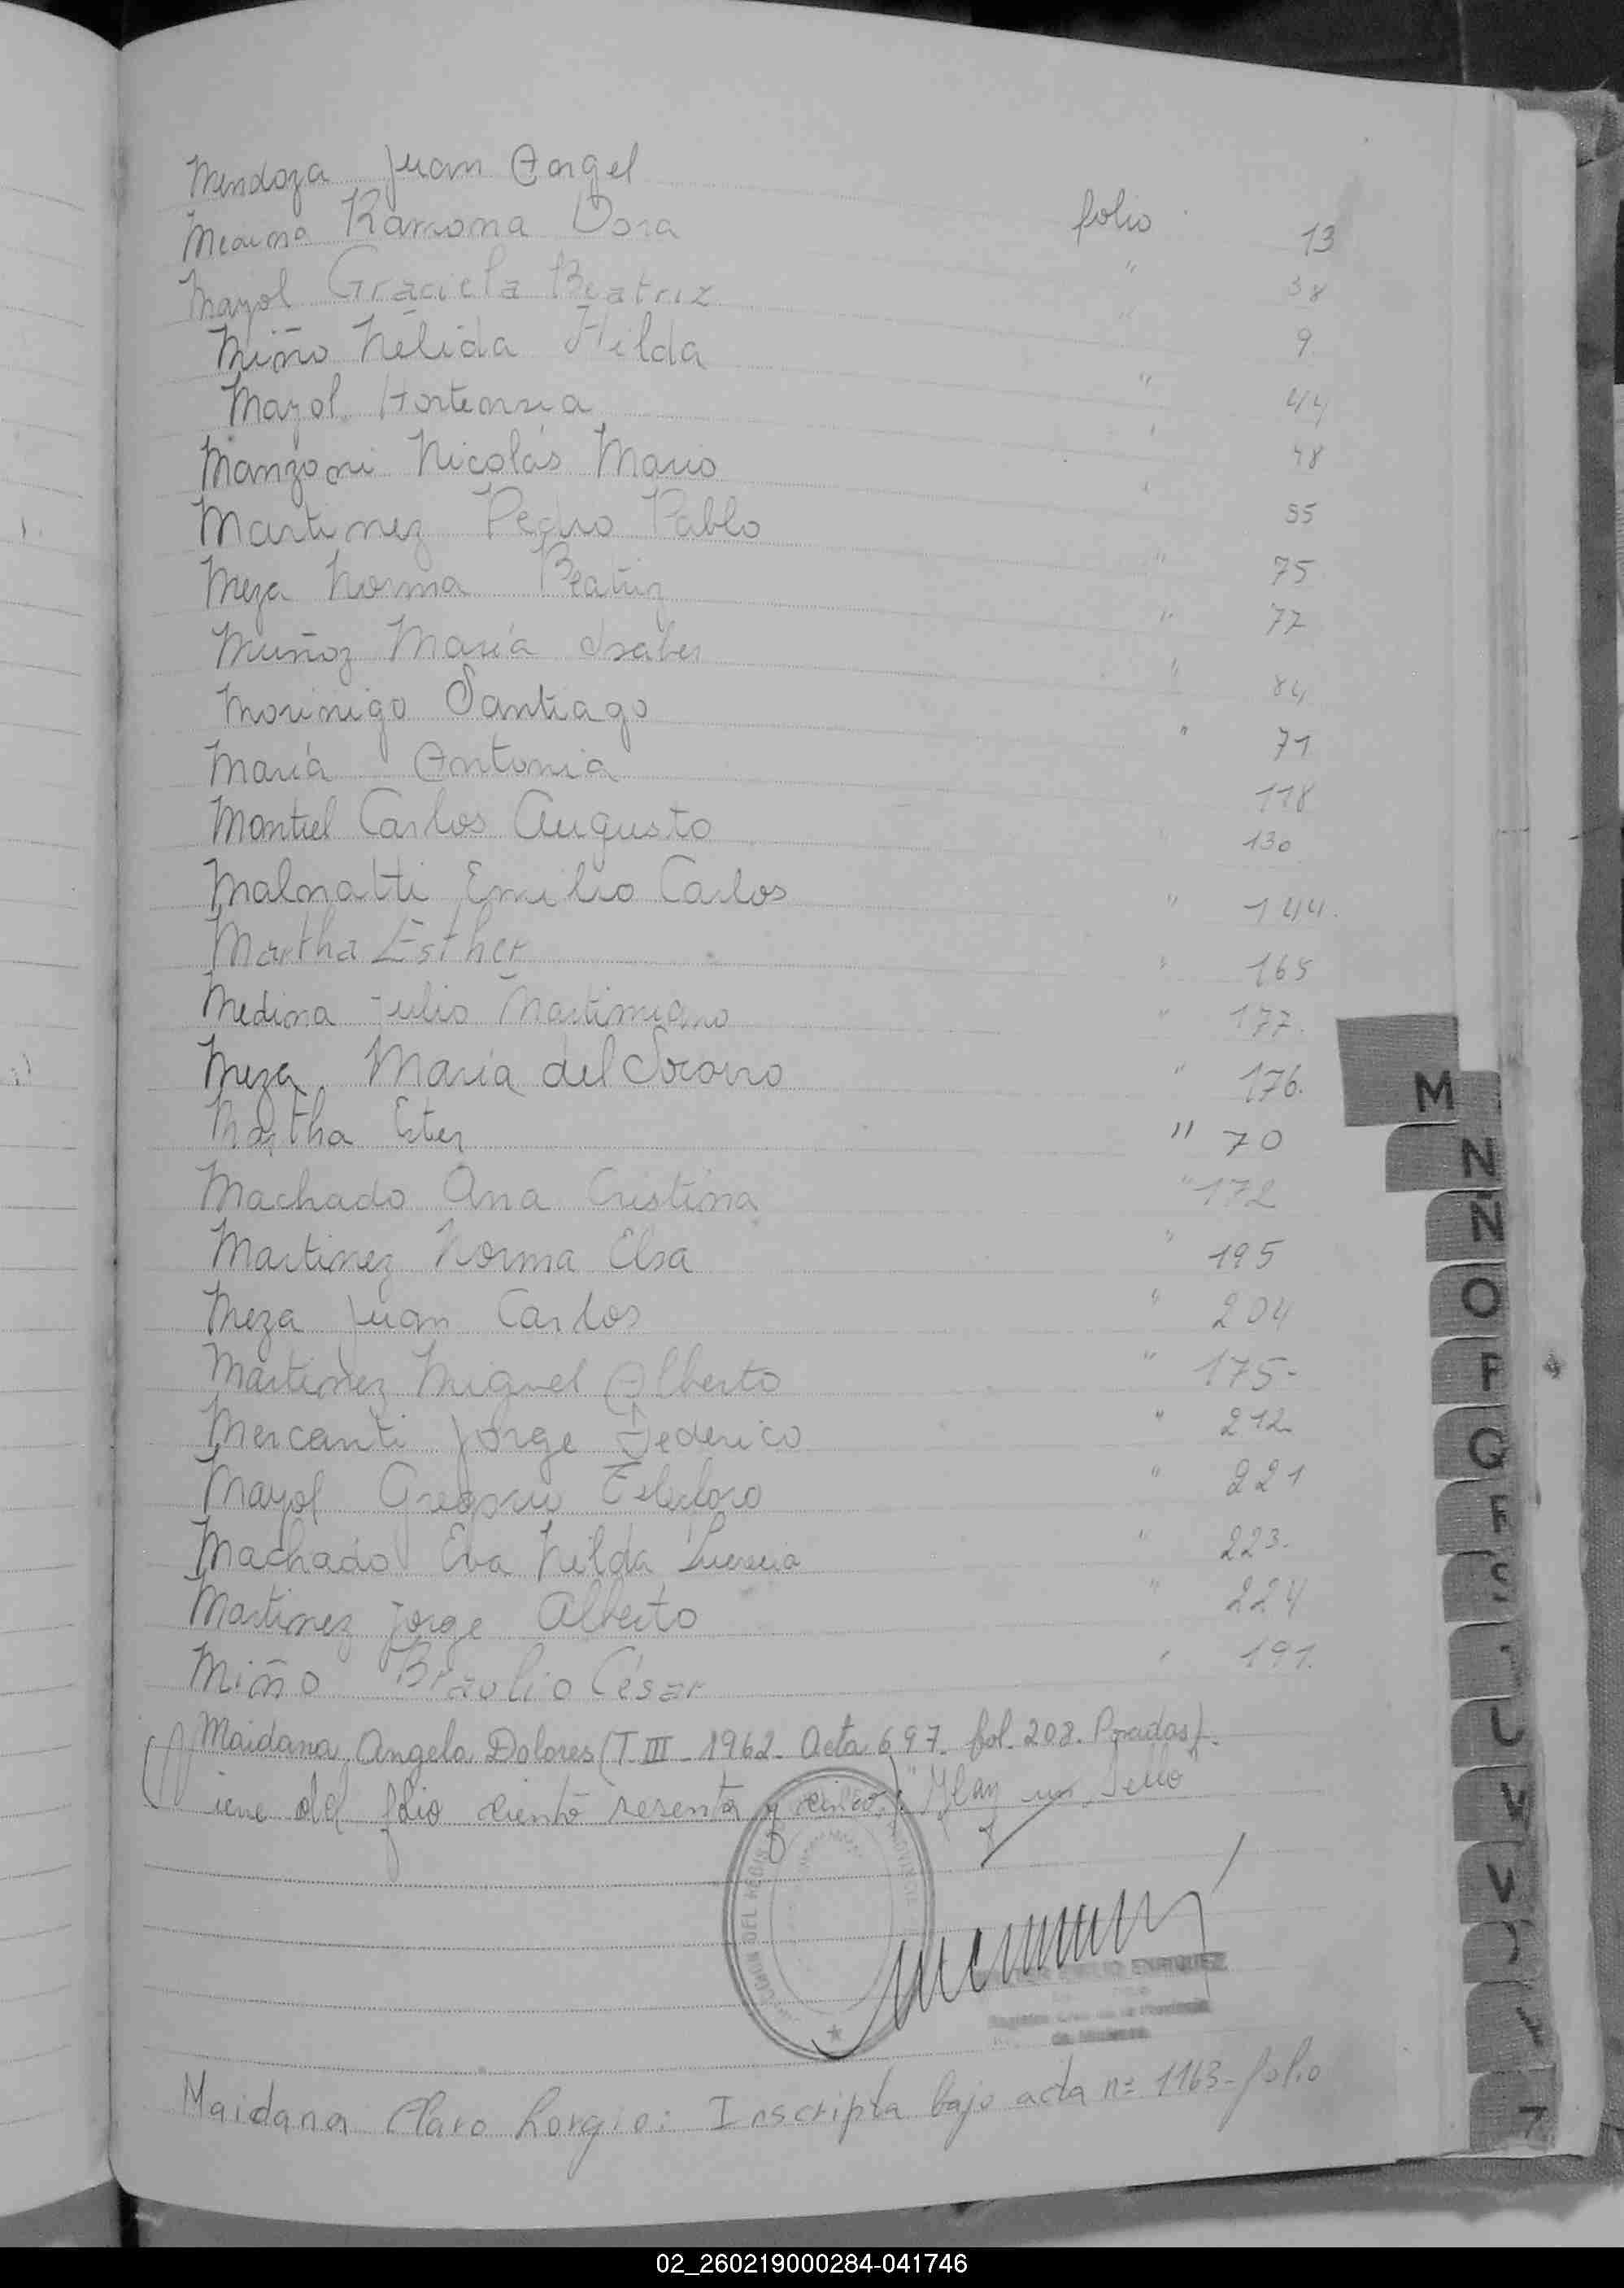 Mendoza Juan Angel folio 13
Medina Ramona Dora " 38
Mayol Graciela Beatriz " 9
Miño Nélida Hilda " 44
Mayol Hortensia " 48
Manzoni Nicolás Mario " 55
Martinez Pedro Pablo " 75
Meza Norma Beatriz " 77
Muñoz María Isabel " 84
Morinigo Santiago " 71
María Antonia 118
Montiel Carlos Augusto 130
Malnatti Emilio Carlos " 144.
Martha Esther " 165
Medina Julio Martimiano " 177.
Meza María del Socorro " 176.
Martha Ester " 70
Machado Ana Cristina " 172
Martinez Norma Elsa " 195
Meza Juan Carlos " 204
Martinez Miguel Alberto " 175-
Mercanti Jorge Federico " 212
Mayol Gregorio " 221
Machado Eva Nilda Lucrecia " 223.
Martinez Jorge Alberto " 224
Miño Braulio César " 191.
Maidana Angela Dolores (T. III - 1962. Acta 697. fol. 208. Posadas).
Viene del folio ciento sesenta y cinco). "Hay un Sello"
DEL REGIS
ENRIQUEZ
Registro de la Provincia
de Misiones
Maidana Claro Lorgio: Inscripta bajo acta nº 1163- folio
M
N
Ñ
O
P
Q
R
S
U
V
W
02_260219000284-041746